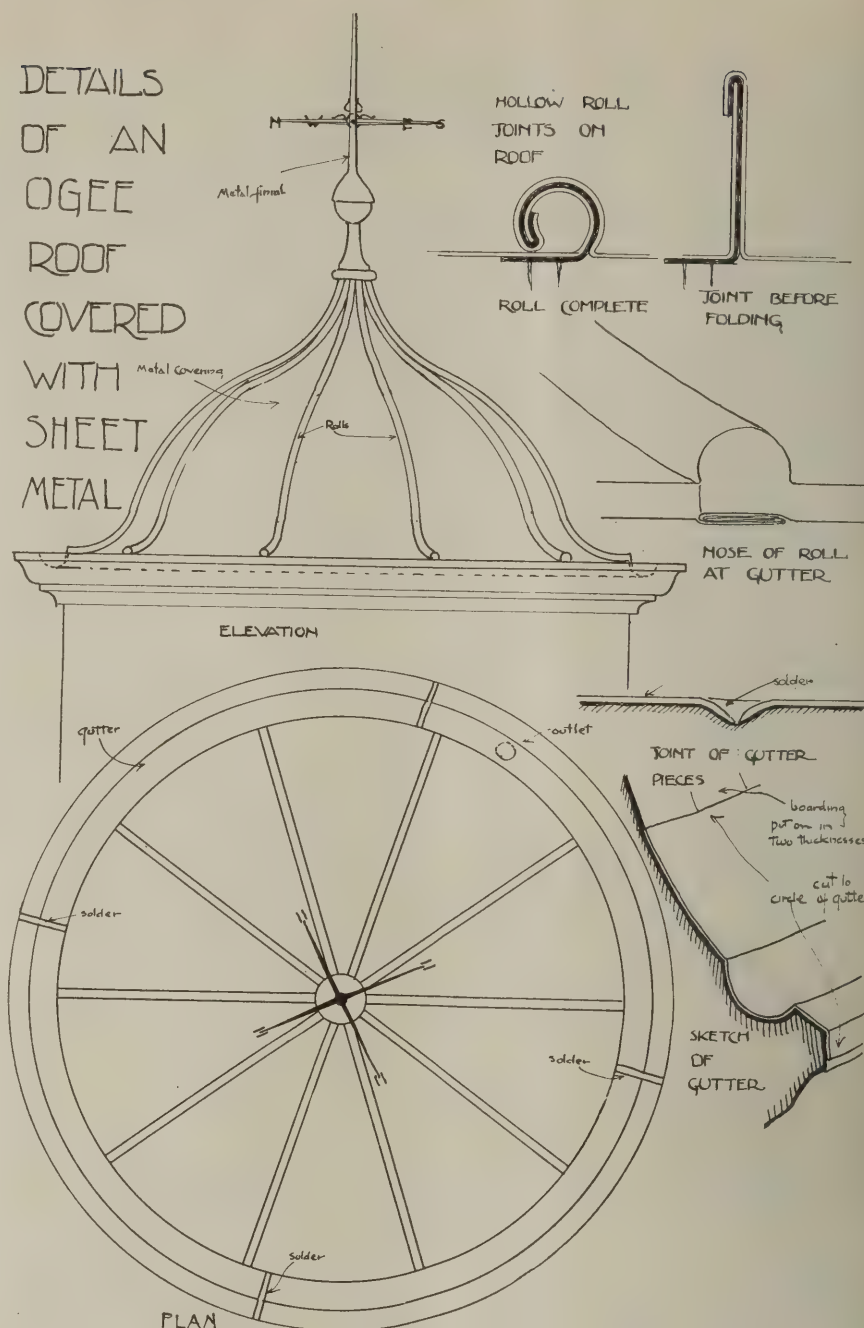 DETAILS
OF AN
OGEE
ROOF
COVERED
WITH
SHEET
METAL
N W E S
Metal finial
Metal Covering
Rolls
ELEVATION
HOLLOW ROLL
JOINTS ON
ROOF
ROLL COMPLETE
JOINT BEFORE
FOLDING
NOSE OF ROLL
AT GUTTER
solder
JOINT OF GUTTER
PIECES
boarding
put on in
Two thicknesses
cut to
circle of gutte
SKETCH
OF
GUTTER
gutter
outlet
solder
solder
solder
PLAN